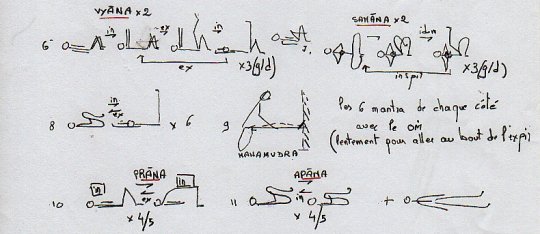 VYĀNA x2
SAMĀNA x2
6 in ex in in idn
ex x3 (g/d) 7. inspi x3 (g/d)
8 in ex x 6 9 les 6 mantra de chaque côté
avec le OM
(lentement pour aller au bout de l'expi)
MAHAMUDRA
PRĀNA APĀNA
10 in ex in 11 ex in +
x 4/5 x 4/5